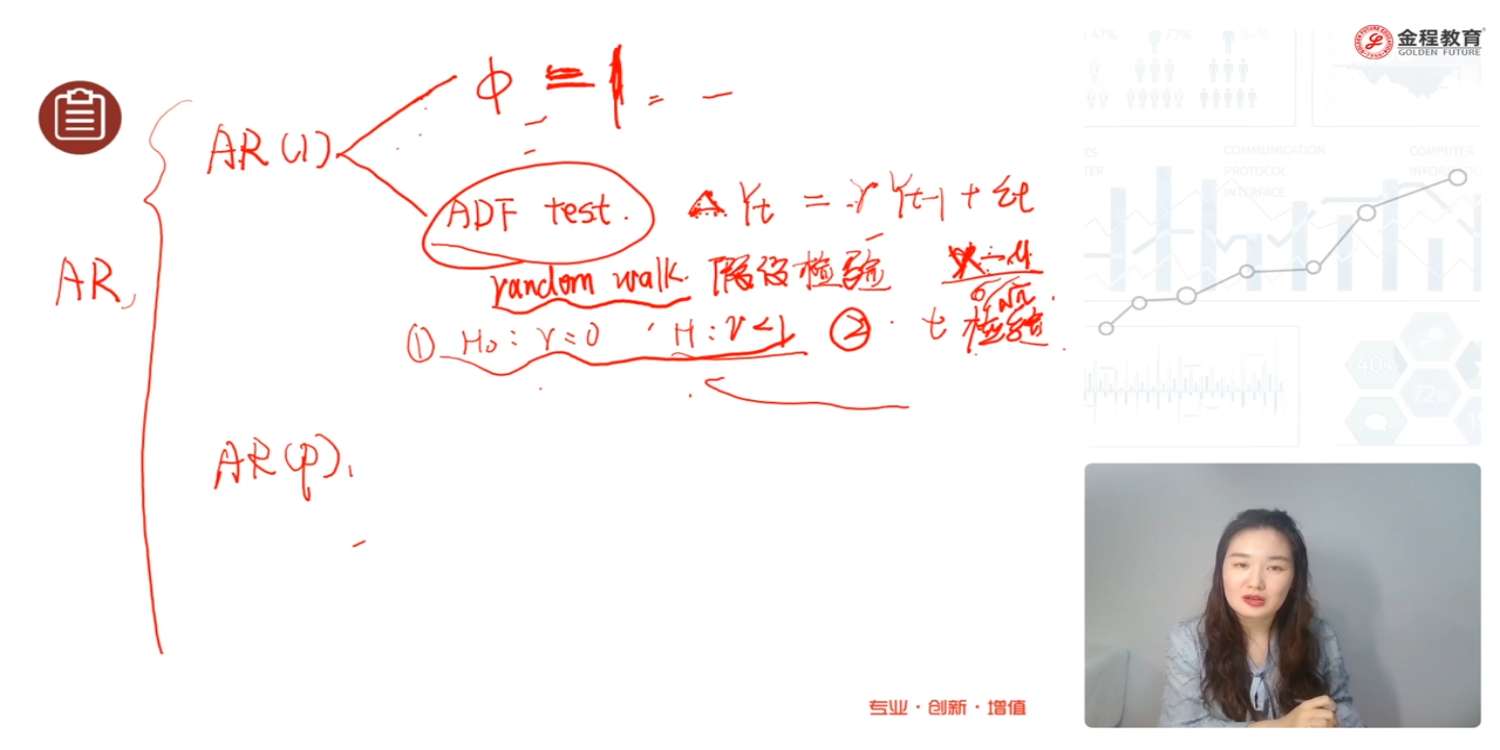 金程教育
GOLDEN FUTURE
ϕ = 1 = -
AR(1)
ADF test. ΔYt = γYt-1 + εt
AR,
random walk. 假设检验
① H0: γ=0 , H: γ<1 ② t 检验
AR(p),
COMMUNICATION
PROTOCOL
INTERFACE
COMPUTER
专业·创新·增值